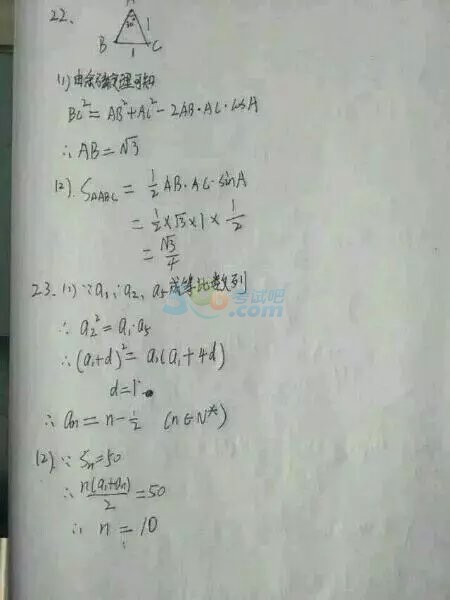 22.
A
30°
1
B
C
1
(1) 由余弦定理可知
BC²=AB²+AC²-2AB·AC·cosA
∴AB=√3
(2). S△ABC = 1/2 AB·AC·sinA
= 1/2×√3×1×1/2
= √3/4
23. (1) ∵a₁, a₂, a₅成等比数列
考试吧
.com
∴ a₂²=a₁·a₅
∴(a₁+d)²=a₁(a₁+4d)
d=1
∴ an=n-1/2 (n∈N*)
(2). ∵ Sn=50
∴ n(a₁+an)/2=50
∴ n=10